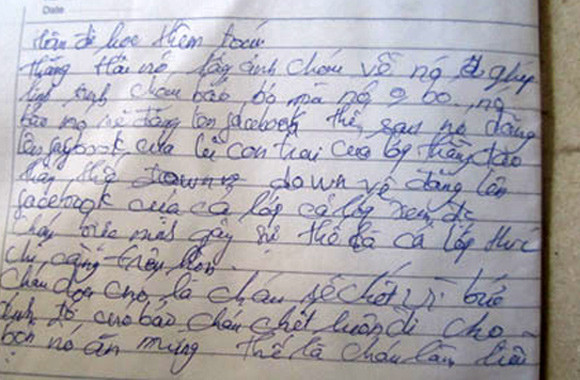 Date
Hôm đi học thêm toán
thằng Hải nó lấy ảnh cháu về nó ghép
linh tinh cháu bảo bỏ mà nó o bỏ, nó
bảo nó sẽ đăng lên facebook thế sau nó đăng
lên facbook của lũ con trai của lớp thằng
thấy thế down về đăng lên
facebook của cả lớp cả lớp xem đc
cháu bức mới gây sự thế là cả lớp
chị càng trêu hơn.
cháu dọa chó là cháu sẽ chết vì bức
ảnh đó cno bảo cháu chết luôn đi cho
bọn nó ăn mừng thế là cháu làm liều